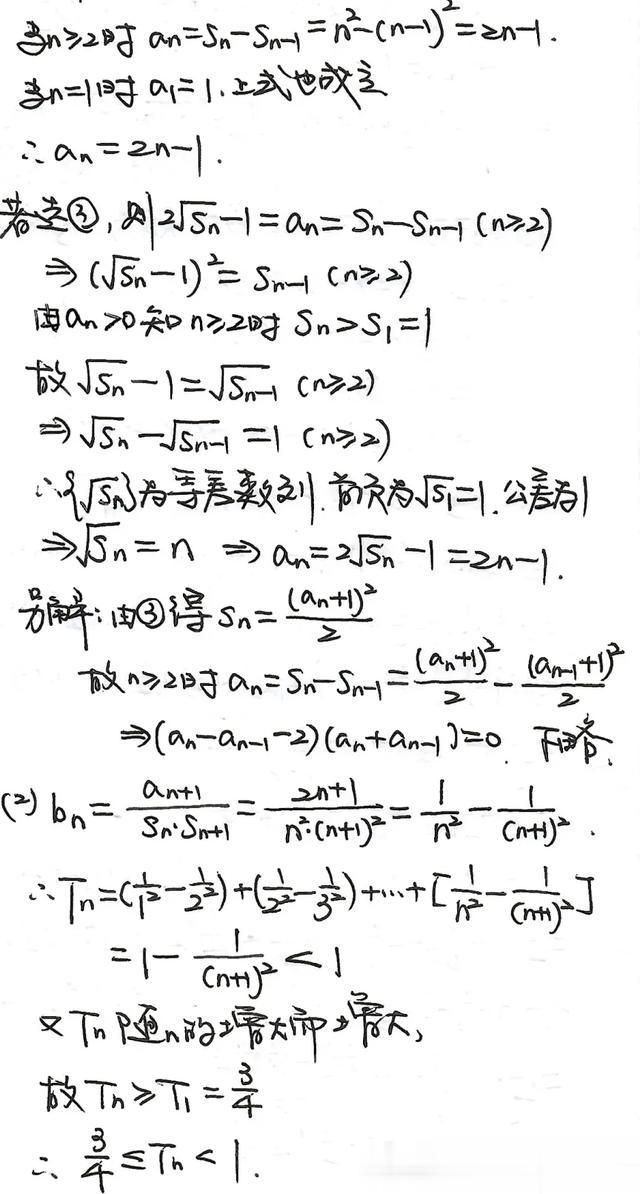 当n≥2时 aₙ=Sₙ-Sₙ₋₁=n²-(n-1)²=2n-1.
当n=1时 a₁=1.上式也成立
∴ aₙ=2n-1.
若选③,则2√Sₙ-1=aₙ=Sₙ-Sₙ₋₁ (n≥2)
⇒(√Sₙ-1)²=Sₙ₋₁ (n≥2)
由aₙ>0知n≥2时 Sₙ>S₁=1
故√Sₙ-1=√Sₙ₋₁ (n≥2)
⇒√Sₙ-√Sₙ₋₁=1 (n≥2)
∴{√Sₙ}为等差数列.首项为√S₁=1.公差为1
⇒√Sₙ=n ⇒ aₙ=2√Sₙ-1=2n-1.
另解:由③得Sₙ=(aₙ+1)²/2
故n≥2时aₙ=Sₙ-Sₙ₋₁=(aₙ+1)²/2-(aₙ₋₁+1)²/2
⇒(aₙ-aₙ₋₁-2)(aₙ+aₙ₋₁)=0. 下略.
(2) bₙ=aₙ₊₁/(Sₙ·Sₙ₊₁)=(2n+1)/(n²·(n+1)²)=1/n²-1/(n+1)².
∴Tₙ=(1/1²-1/2²)+(1/2²-1/3²)+…+[1/n²-1/(n+1)²]
=1-1/(n+1)²<1
又Tₙ随n的增大而增大,
故Tₙ≥T₁=3/4
∴ 3/4≤Tₙ<1.